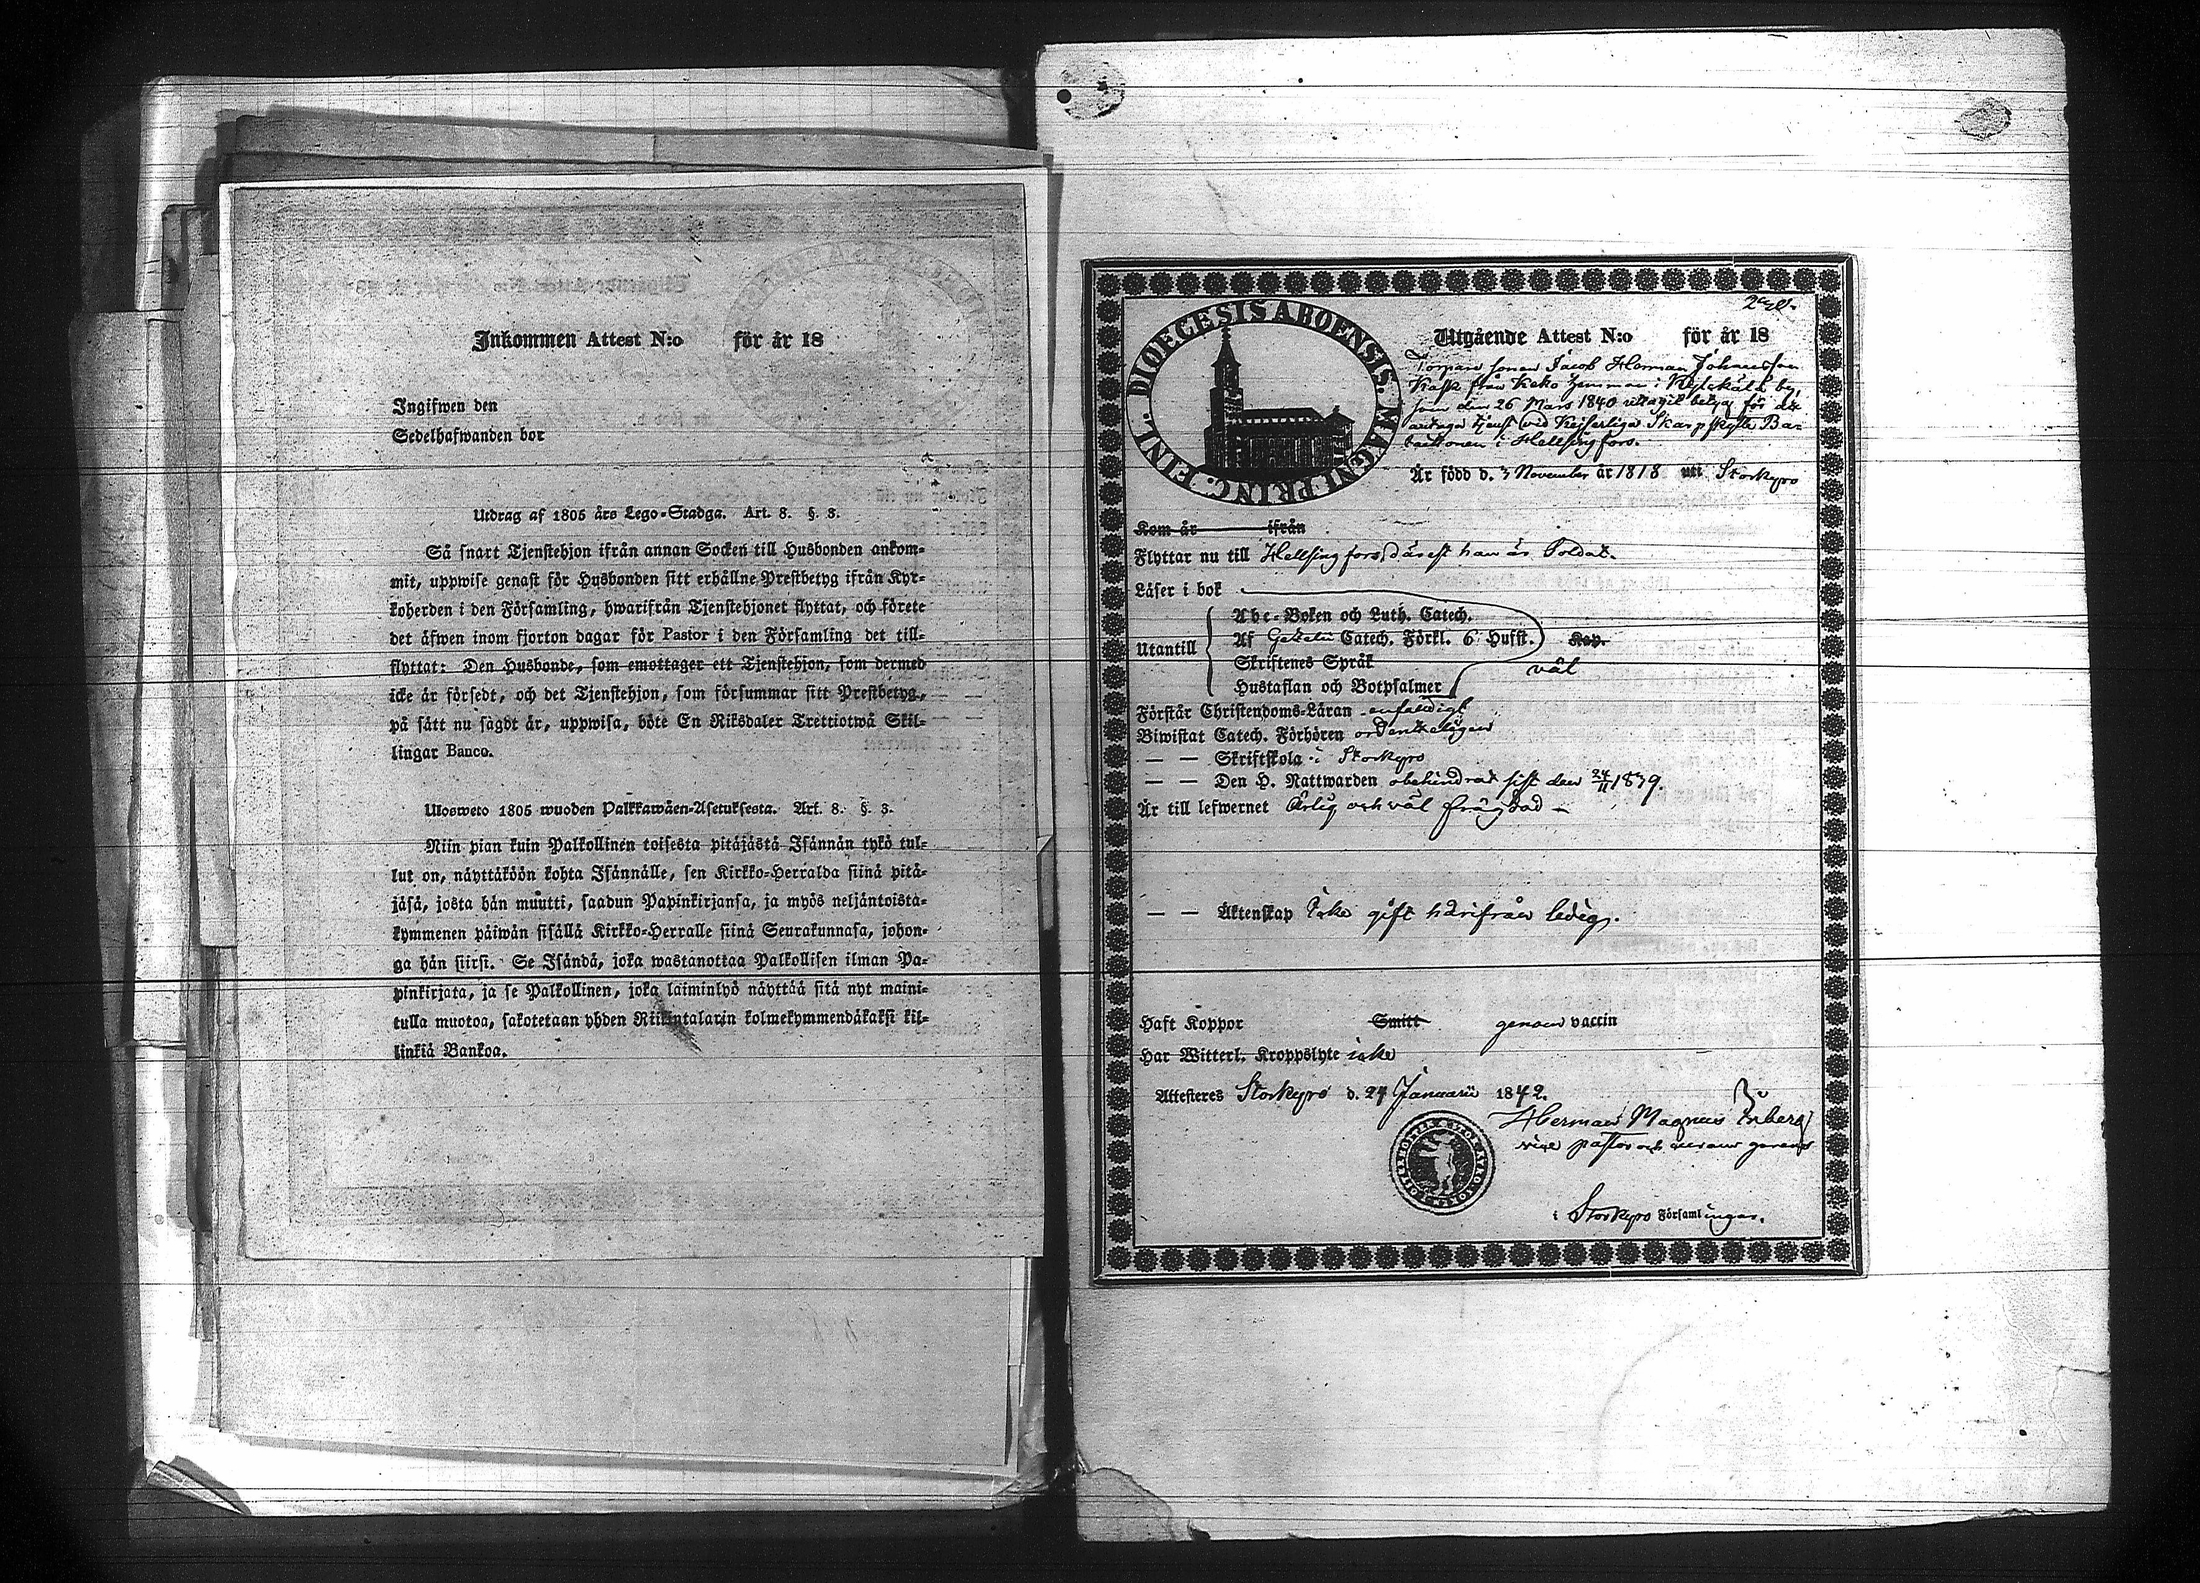 Inkommen Attest N:o för år 18
Ingifwen den
Sedelhafwanden bor
Utdrag af 1805 års Lego-Stadga. Art. 8. §. 3.
Så snart Tjenstehjon ifrån annan Socken till Husbonden ankom-
mit, uppwise genast för Husbonden sitt erhållne Prestbetyg ifrån Kyr-
koherden i den Församling, hwarifrån Tjenstehjonet flyttat, och förete
det äfwen inom fjorton dagar för Pastor i den Församling det till-
flyttat: Den Husbonde, som emottager ett Tjenstehjon, som dermed
icke är försedt, och det Tjenstehjon, som försummar sitt Prestbetyg,
på sätt nu sagdt är, uppwisa, böte En Riksdaler Trettiotwå Skil-
lingar Banco.
Ulosweto 1805 wuoden Palkkawäen-Asetuksesta. Art. 8. §. 3.
Niin pian kuin Palkollinen toisesta pitäjästä Isännän tykö tul-
lut on, näyttäköön kohta Isännälle, sen Kirkko-Herralda siinä pitä-
jäsä, josta hän muutti, saadun Papinkirjansa, ja myös neljäntoista-
kymmenen päiwän sisällä Kirkko-Herralle siinä Seurakunnasa, johon-
ga hän siirsi. Se Isändä, joka wastanottaa Palkollisen ilman Pa-
pinkirjata, ja se Palkollinen, joka laiminlyö näyttää sitä nyt maini-
tulla muotoa, sakotetaan yhden Riikintalarin kolmekymmendäkaksi kil-
linkiä Bankoa.
DIOECESIS ABOENSIS. MAGNI PRINC. FINL.
Utgående Attest N:o för år 18
Torpare sonen Jacob Herman Johansson
från Keko hemman i by,
som den 26 Mars 1840 uttagit betyg för att
antaga tjenst vid Kejserliga Skarpskytte Ba-
taillonen i Hellsingfors.
Är född d. 3 November år 1818 uti Storkyro
Kom år ifrån
Flyttar nu till Hellsingfors därest han är Soldat.
Läser i bok
Abc-Boken och Luth. Catech.
Utantill Af Catech. Förkl. 6 Hufst. Kop.
Skriftenes Språk väl
Hustaflan och Botpsalmer
Förstår Christendoms-Läran enfaldigt
Biwistat Catech. Förhören ordenteligen
— — Skriftskola i Storkyro
— — Den H. Nattwarden obehindrat sist den 24/11 1839.
Är till lefwernet Ärlig och väl frägdad —
— — Äktenskap Icke gift härifrån ledig.
Haft Koppor Smitt genom vaccin
Har Witterl. Kroppslyte icke
Attesteres Storkyro d. 24 Januarii 1842.
Herman Magnus
vice pastor
i Storkyro Församlingar.